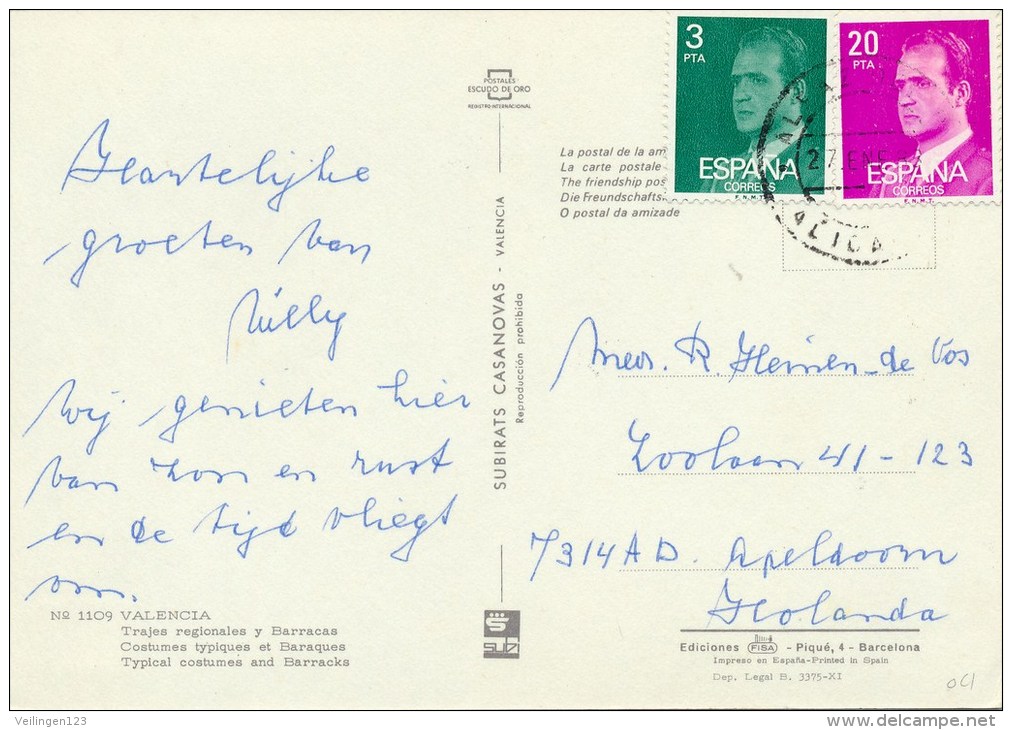 Hartelijke
groeten van
Willy
Wij genieten hier
van zon en rust
en de tijd vliegt
om.
Nº 1109 VALENCIA
Trajes regionales y Barracas
Costumes typiques et Baraques
Typical costumes and Barracks
POSTALES
ESCUDO DE ORO
REGISTRO INTERNACIONAL
SUBIRATS CASANOVAS - VALENCIA
Reproducción prohibida
subi
La postal de la am
La carte postale
The friendship pos
Die Freundschafts
O postal da amizade
3
PTA
ESPAÑA
CORREOS
F.N.M.T.
20
PTA
ESPAÑA
CORREOS
F.N.M.T.
27 ENE
ALICA
Mevr. R. Heinen-de Vos
Zoolaan 41-123
7314AD. Apeldoorn
Holanda
Ediciones FISA - Piqué, 4 - Barcelona
Impreso en España-Printed in Spain
Dep. Legal B. 3375-XI
Veilingen123
delcampe.net